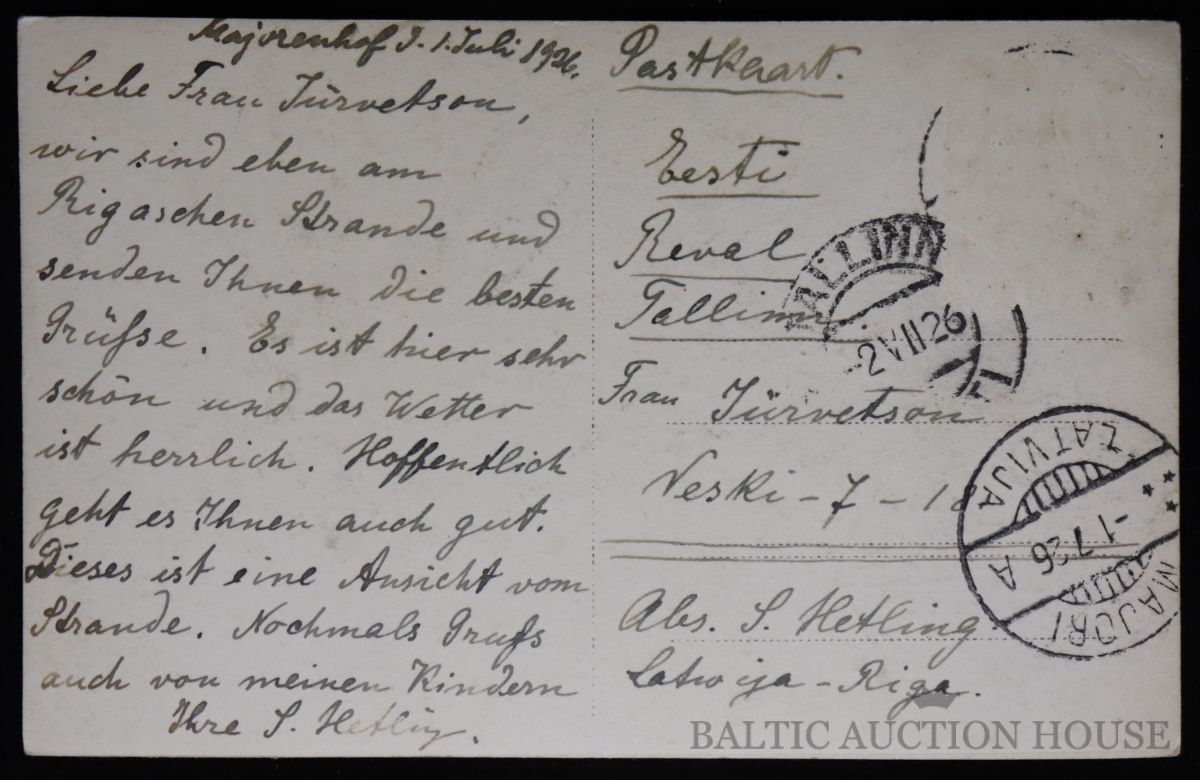 Majorenhof d. 1. Juli 1926.
Liebe Frau Jürvetson,
wir sind eben am
Rigaschen Strande und
senden Ihnen die besten
Grüfse. Es ist hier sehr
schön und das Wetter
ist herrlich. Hoffentlich
geht es Ihnen auch gut.
Dieses ist eine Ansicht vom
Strande. Nochmals Grufs
auch von meinen Kindern
Ihre S. Hetling.
Postkaart.
Eesti
Reval
Tallinn.
Frau Jürvetson
Veski - 7 - 18
Abs. S. Hetling
Latwija - Riga.
TALLINN
-2 VII 26
LATVIJA
-1 7 26 A
MAJORI
BALTIC AUCTION HOUSE